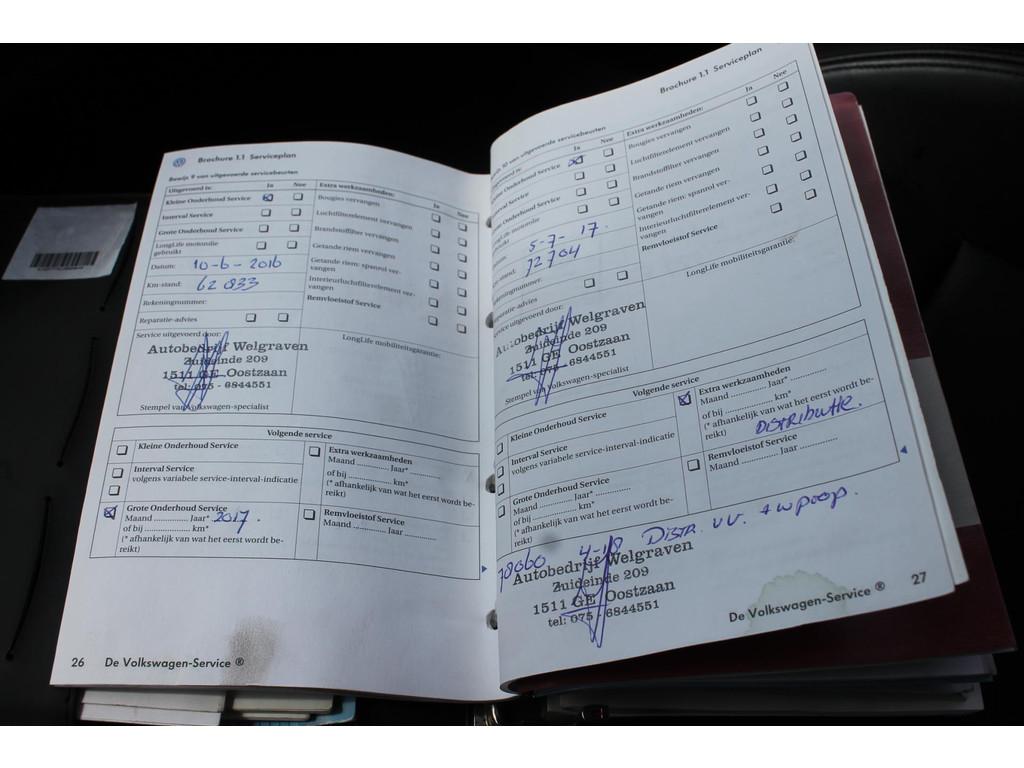 Brochure 1.1 Serviceplan
Bewijs 9 van uitgevoerde servicebeurten
Uitgevoerd is: Ja Nee
Kleine Onderhoud Service
Interval Service
Grote Onderhoud Service
LongLife motorolie
gebruikt
Datum: 10-6-2016
Km-stand: 62 833
Rekeningnummer:
Reparatie-advies
Extra werkzaamheden: Ja Nee
Bougies vervangen
Luchtfilterelement vervangen
Brandstoffilter vervangen
Getande riem vervangen
Getande riem: spanrol ver-
vangen
Interieurluchtfilterelement ver-
vangen
Remvloeistof Service
Service uitgevoerd door:
Autobedrijf Welgraven
Zuideinde 209
1511 GE Oostzaan
tel: 075 - 6844551
Stempel van Volkswagen-specialist
LongLife mobiliteitsgarantie:
Volgende service
Kleine Onderhoud Service
Interval Service
volgens variabele service-interval-indicatie
Grote Onderhoud Service
Maand .............. Jaar* 2017.
of bij .................... km*
(* afhankelijk van wat het eerst wordt be-
reikt)
Extra werkzaamheden
Maand ............. Jaar* ............
of bij .................... km*
(* afhankelijk van wat het eerst wordt be-
reikt)
Remvloeistof Service
Maand ............. Jaar ............
26 De Volkswagen-Service ®
Brochure 1.1 Serviceplan
10 van uitgevoerde servicebeurten
Ja Nee
Kleine Onderhoud Service
Interval Service
Grote Onderhoud Service
LongLife motorolie
5-7-17.
stand: 72704
Rekeningnummer:
Reparatie-advies
Extra werkzaamheden: Ja Nee
Bougies vervangen
Luchtfilterelement vervangen
Brandstoffilter vervangen
Getande riem vervangen
Getande riem: spanrol ver-
vangen
Interieurluchtfilterelement ver-
vangen
Remvloeistof Service
Service uitgevoerd door:
Autobedrijf Welgraven
Zuideinde 209
1511 GE Oostzaan
tel: 075 - 6844551
Stempel van Volkswagen-specialist
LongLife mobiliteitsgarantie:
Volgende service
Kleine Onderhoud Service
Interval Service
volgens variabele service-interval-indicatie
Grote Onderhoud Service
Maand ............. Jaar* ............
of bij .................... km*
(* afhankelijk van wat het eerst wordt be-
reikt)
Extra werkzaamheden
Maand ............. Jaar* ............
of bij .................... km*
(* afhankelijk van wat het eerst wordt be-
reikt) Distributie.
Remvloeistof Service
Maand ............. Jaar ............
78060 4-18 Distr. vv. + wpomp.
Autobedrijf Welgraven
Zuideinde 209
1511 GE Oostzaan
tel: 075 - 6844551
De Volkswagen-Service ® 27